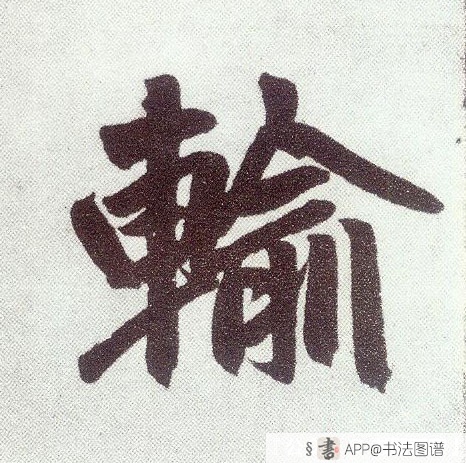 輸
§ 書 APP@书法图谱